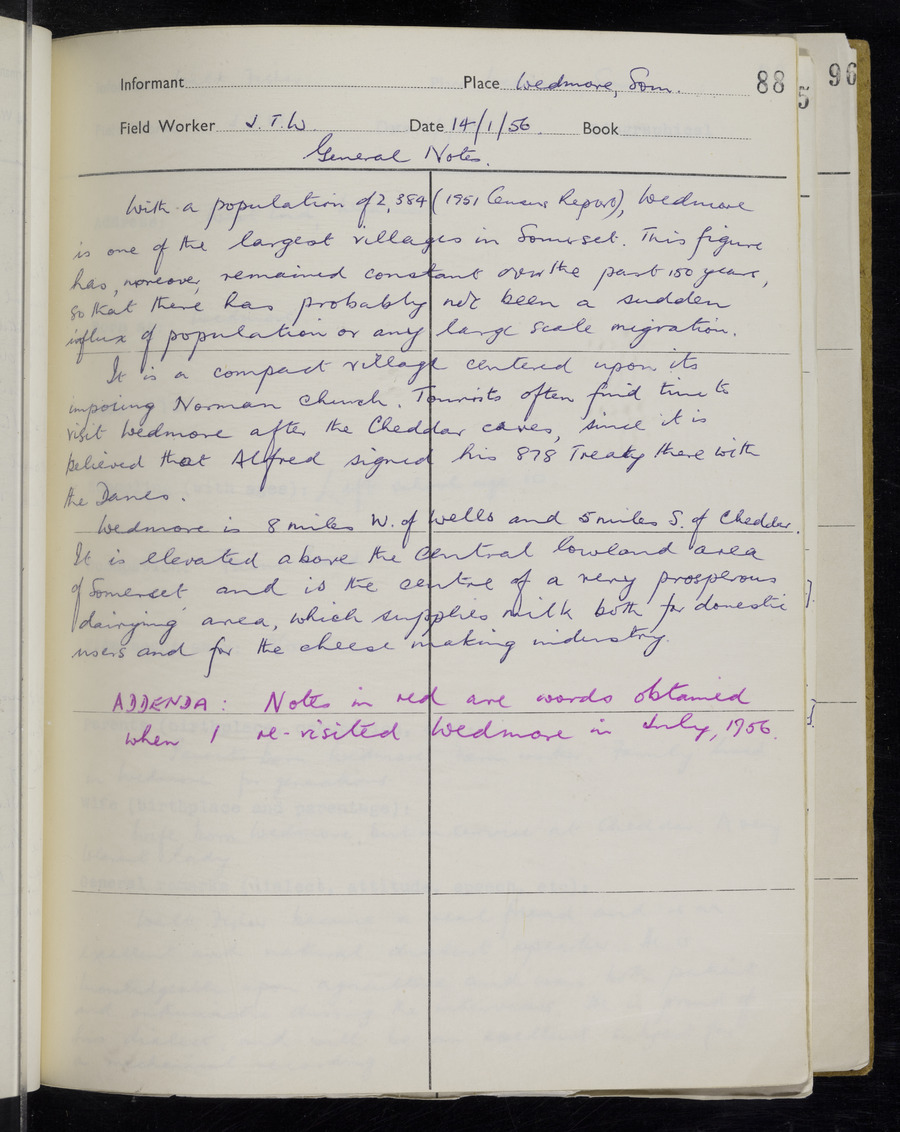 Informant Place Wedmore, Som. 88
96
5
Field Worker J.T.W. Date 14/1/56 Book
General Notes.
With a population of 2,384 (1951 Census Report), Wedmore
is one of the largest villages in Somerset. This figure
has, moreover, remained constant over the past 150 years,
so that there has probably not been a sudden
influx of population or any large scale migration.
It is a compact village centered upon its
imposing Norman church. Tourists often find time to
visit Wedmore after the Cheddar caves, since it is
believed that Alfred signed his 878 Treaty there with
the Danes.
Wedmore is 8 miles W. of Wells and 5 miles S. of Cheddar.
It is elevated above the central lowland area
of Somerset and is the centre of a very prosperous
dairying area, which supplies milk both for domestic
users and for the cheese making industry.
ADDENDA: Notes in red are words obtained
when I re-visited Wedmore in July, 1956.